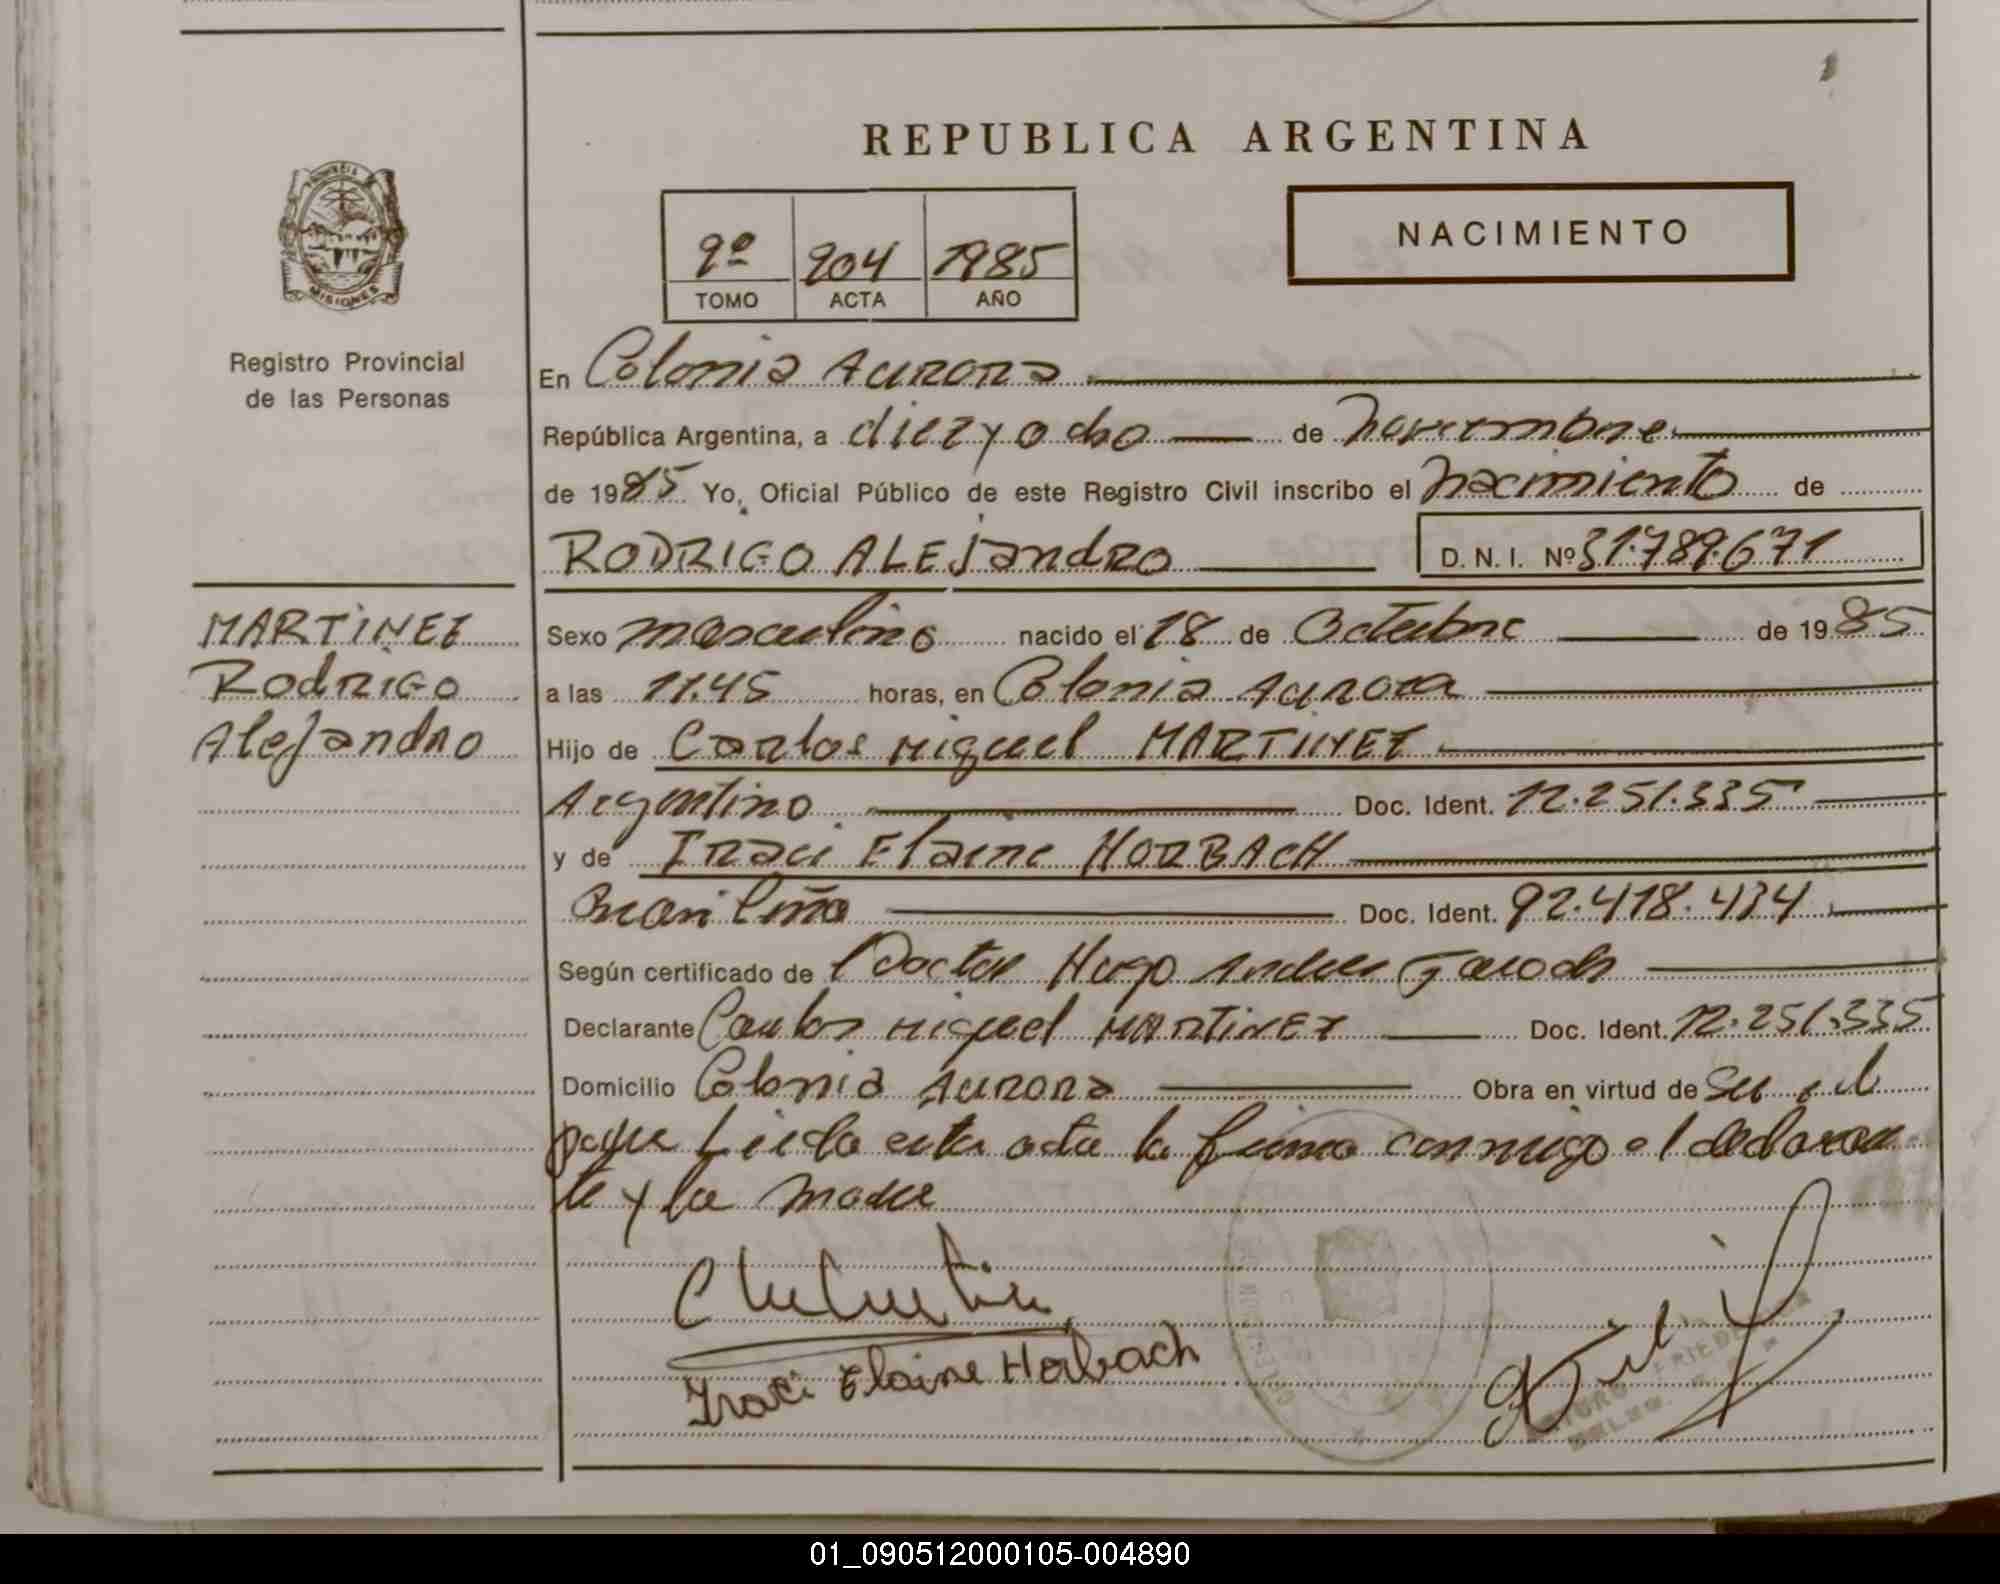 REPUBLICA ARGENTINA
NACIMIENTO
2º 204 1985
TOMO ACTA AÑO
PROVINCIA DE
MISIONES
Registro Provincial
de las Personas
En Colonia Aurora
República Argentina, a diez y ocho de noviembre
de 1985 Yo, Oficial Público de este Registro Civil inscribo el nacimiento de
RODRIGO ALEjandRO D. N. I. Nº 31.789.671
MARTINEZ
Rodrigo
Alejandro
Sexo masculino nacido el 18 de Octubre de 1985
a las 11.45 horas, en Colonia Aurora
Hijo de Carlos Miguel MARTINEZ
Argentino Doc. Ident. 12.251.335
y de Iraci Elaine HORBACH
Brasileña Doc. Ident. 92.418.434
Según certificado de Doctor Hugo Andres
Declarante Carlos Miguel MARTINEZ Doc. Ident. 12.251.335
Domicilio Colonia Aurora Obra en virtud de Ser el
padre Leida esta acta la firma conmigo el declaran
te y la madre
Iraci Elaine Horbach
01_090512000105-004890